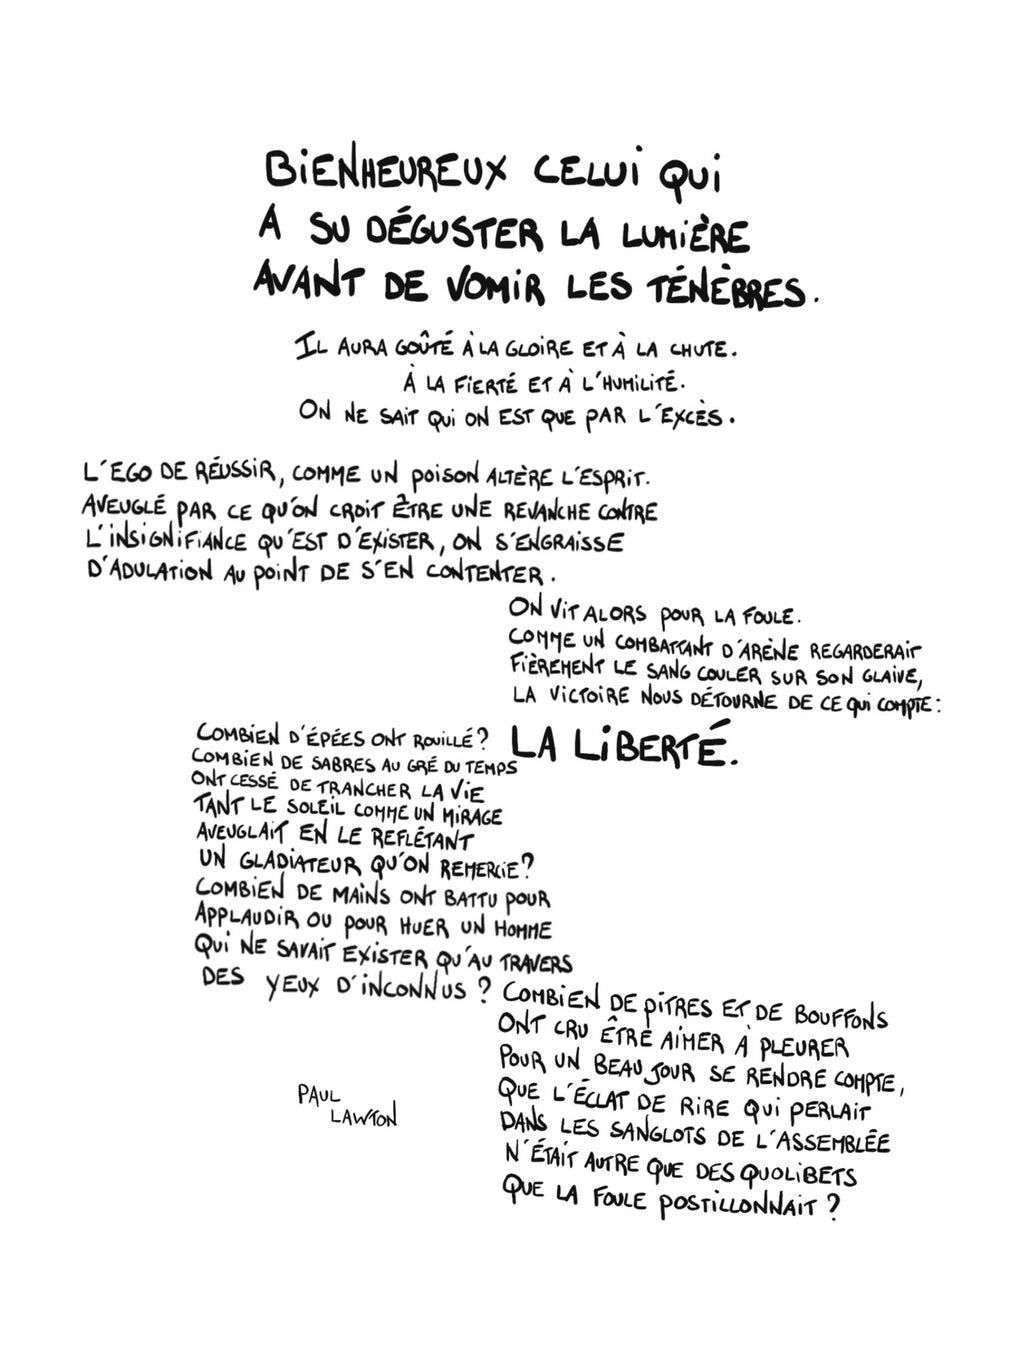 BIENHEUREUX CELUI QUI
A SU DÉGUSTER LA LUMIÈRE
AVANT DE VOMIR LES TÉNÈBRES.
IL AURA GOÛTÉ À LA GLOIRE ET À LA CHUTE.
À LA FIERTÉ ET À L'HUMILITÉ.
ON NE SAIT QUI ON EST QUE PAR L'EXCÈS.
L'EGO DE RÉUSSIR, COMME UN POISON ALTÈRE L'ESPRIT.
AVEUGLÉ PAR CE QU'ON CROIT ÊTRE UNE REVANCHE CONTRE
L'INSIGNIFIANCE QU'EST D'EXISTER, ON S'ENGRAISSE
D'ADULATION AU POINT DE S'EN CONTENTER.
ON VIT ALORS POUR LA FOULE.
COMME UN COMBATTANT D'ARÈNE REGARDERAIT
FIÈREMENT LE SANG COULER SUR SON GLAIVE,
LA VICTOIRE NOUS DÉTOURNE DE CE QUI COMPTE:
LA LIBERTÉ.
COMBIEN D'ÉPÉES ONT ROUILLÉ?
COMBIEN DE SABRES AU GRÉ DU TEMPS
ONT CESSÉ DE TRANCHER LA VIE
TANT LE SOLEIL COMME UN MIRAGE
AVEUGLAIT EN LE REFLÉTANT
UN GLADIATEUR QU'ON REMERCIE?
COMBIEN DE MAINS ONT BATTU POUR
APPLAUDIR OU POUR HUER UN HOMME
QUI NE SAVAIT EXISTER QU'AU TRAVERS
DES YEUX D'INCONNUS?
COMBIEN DE PITRES ET DE BOUFFONS
ONT CRU ÊTRE AIMER À PLEURER
POUR UN BEAU JOUR SE RENDRE COMPTE,
QUE L'ÉCLAT DE RIRE QUI PERLAIT
DANS LES SANGLOTS DE L'ASSEMBLÉE
N'ÉTAIT AUTRE QUE DES QUOLIBETS
QUE LA FOULE POSTILLONNAIT?
PAUL
LAWTON